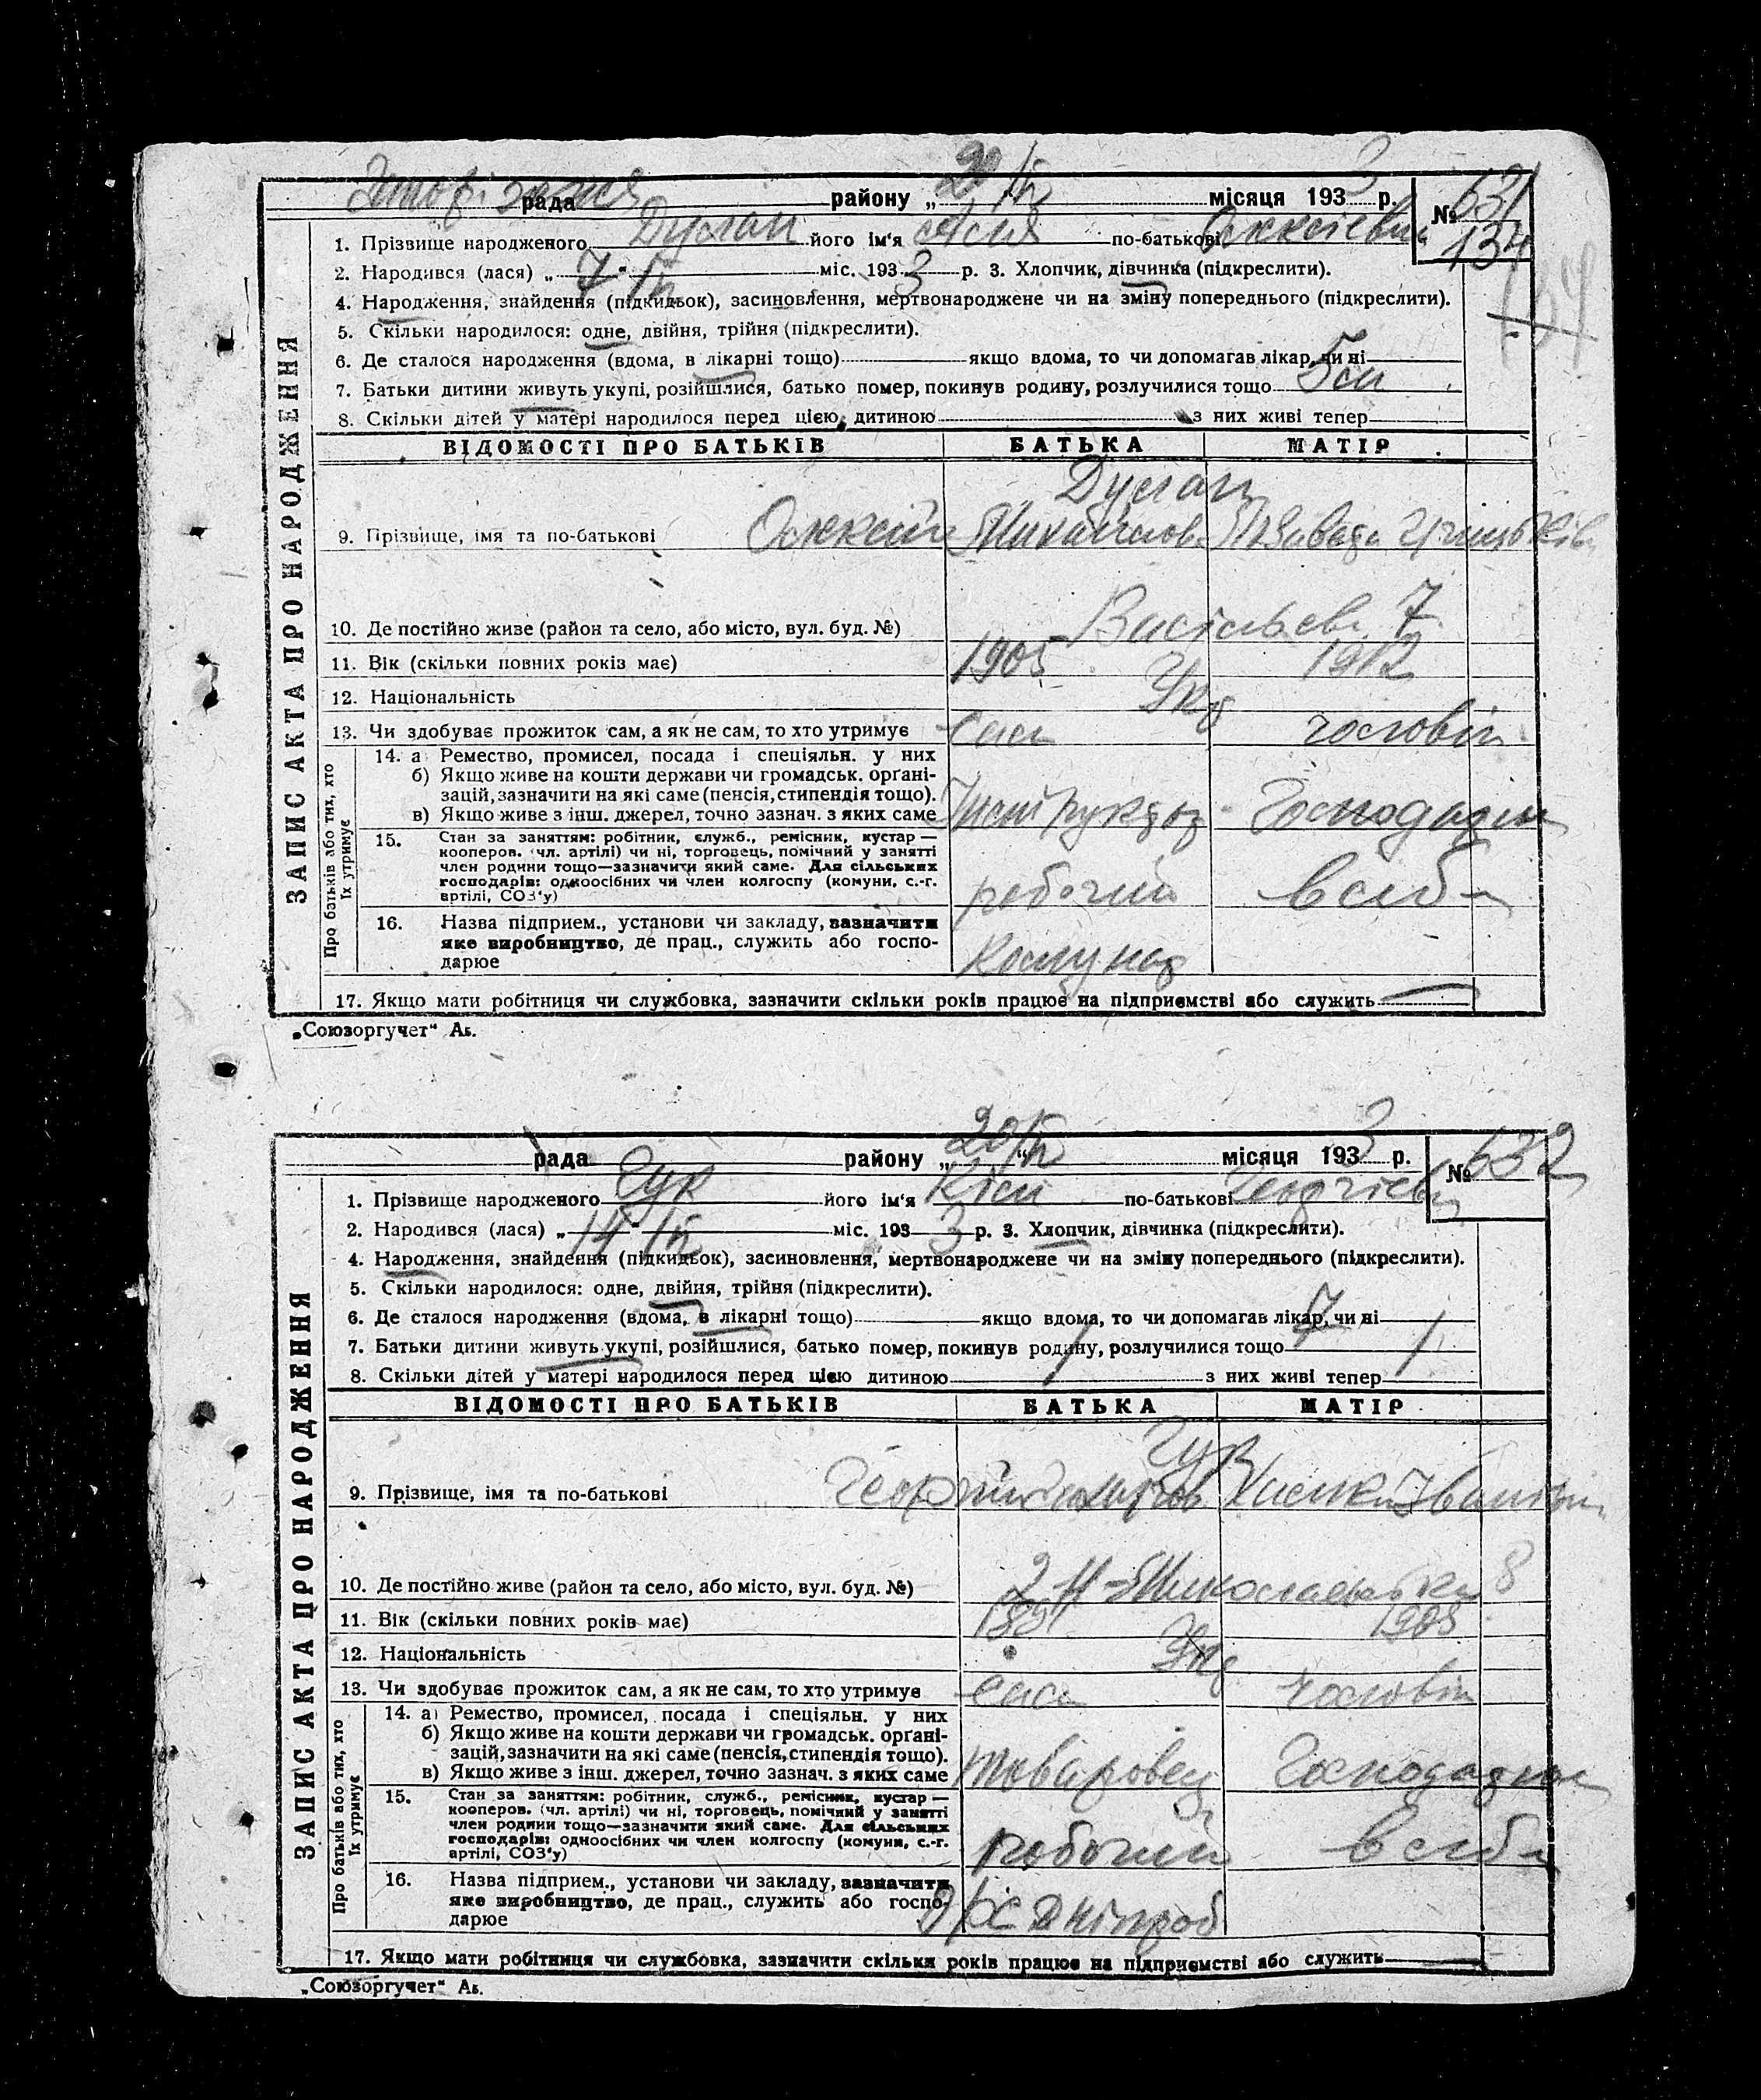 рада району „20/IV“ місяця 1933 р. № 631
134
1. Прізвище народженого Дуган його ім‘я по-батькові
2. Народився (лася) „7“ IV міс. 1933 р. 3. Хлопчик, дівчинка (підкреслити).
4. Народження, знайдення (підкидьок), засиновлення, мертвонароджене чи на зміну попереднього (підкреслити).
5. Скільки народилося: одне, двійня, трійня (підкреслити).
6. Де сталося народження (вдома, в лікарні тощо) якщо вдома, то чи допомагав лікар, чи ні
7. Батьки дитини живуть укупі, розійшлися, батько помер, покинув родину, розлучилися тощо
8. Скільки дітей у матері народилося перед цією дитиною з них живі тепер
ЗАПИС АКТА ПРО НАРОДЖЕННЯ
ВІДОМОСТІ ПРО БАТЬКІВ БАТЬКА МАТІР
9. Прізвище, імя та по-батькові
10. Де постійно живе (район та село, або місто, вул. буд. №) 7
11. Вік (скільки повних років має) 1905 1912
12. Національність Укр
13. Чи здобуває прожиток сам, а як не сам, то хто утримує сам чоловік
Про батьків або тих, хто їх утримує
14. а) Ремество, промисел, посада і спеціяльн. у них
б) Якщо живе на кошти держави чи громадськ. органі-
зацій, зазначити на які саме (пенсія, стипендія тощо).
в) Якщо живе з інш. джерел, точно зазнач. з яких саме
15. Стан за заняттям: робітник, служб., ремісник, кустар —
кооперов. (чл. артілі) чи ні, торговець, помічний у занятті
член родини тощо—зазначити який саме. Для сільських
господарів: одноосібних чи член колгоспу (комуни, с.-г.
артілі, СОЗ‘у) робочий
16. Назва підприєм., установи чи закладу, зазначити
яке виробництво, де прац., служить або госпо-
дарює Комунар
17. Якщо мати робітниця чи службовка, зазначити скільки років працює на підприємстві або служить
„Союзоргучет“ Аб.
рада району „20/IV“ місяця 1933 р. № 632
1. Прізвище народженого Гур його ім‘я по-батькові
2. Народився (лася) „14“ IV міс. 1933 р. 3. Хлопчик, дівчинка (підкреслити).
4. Народження, знайдення (підкидьок), засиновлення, мертвонароджене чи на зміну попереднього (підкреслити).
5. Скільки народилося: одне, двійня, трійня (підкреслити).
6. Де сталося народження (вдома, в лікарні тощо) якщо вдома, то чи допомагав лікар, чи ні
7. Батьки дитини живуть укупі, розійшлися, батько помер, покинув родину, розлучилися тощо 7
8. Скільки дітей у матері народилося перед цією дитиною 1 з них живі тепер 1
ЗАПИС АКТА ПРО НАРОДЖЕННЯ
ВІДОМОСТІ ПРО БАТЬКІВ БАТЬКА МАТІР
Гур
9. Прізвище, імя та по-батькові
10. Де постійно живе (район та село, або місто, вул. буд. №) 8
11. Вік (скільки повних років має)
12. Національність Укр
13. Чи здобуває прожиток сам, а як не сам, то хто утримує сам чоловік
Про батьків або тих, хто їх утримує
14. а) Ремество, промисел, посада і спеціяльн. у них
б) Якщо живе на кошти держави чи громадськ. органі-
зацій, зазначити на які саме (пенсія, стипендія тощо).
в) Якщо живе з інш. джерел, точно зазнач. з яких саме
15. Стан за заняттям: робітник, служб., ремісник, кустар —
кооперов. (чл. артілі) чи ні, торговець, помічний у занятті
член родини тощо—зазначити який саме. Для сільських
господарів: одноосібних чи член колгоспу (комуни, с.-г.
артілі, СОЗ‘у) робочий
16. Назва підприєм., установи чи закладу, зазначити
яке виробництво, де прац., служить або госпо-
дарює
17. Якщо мати робітниця чи службовка, зазначити скільки років працює на підприємстві або служить
„Союзоргучет“ Аб.